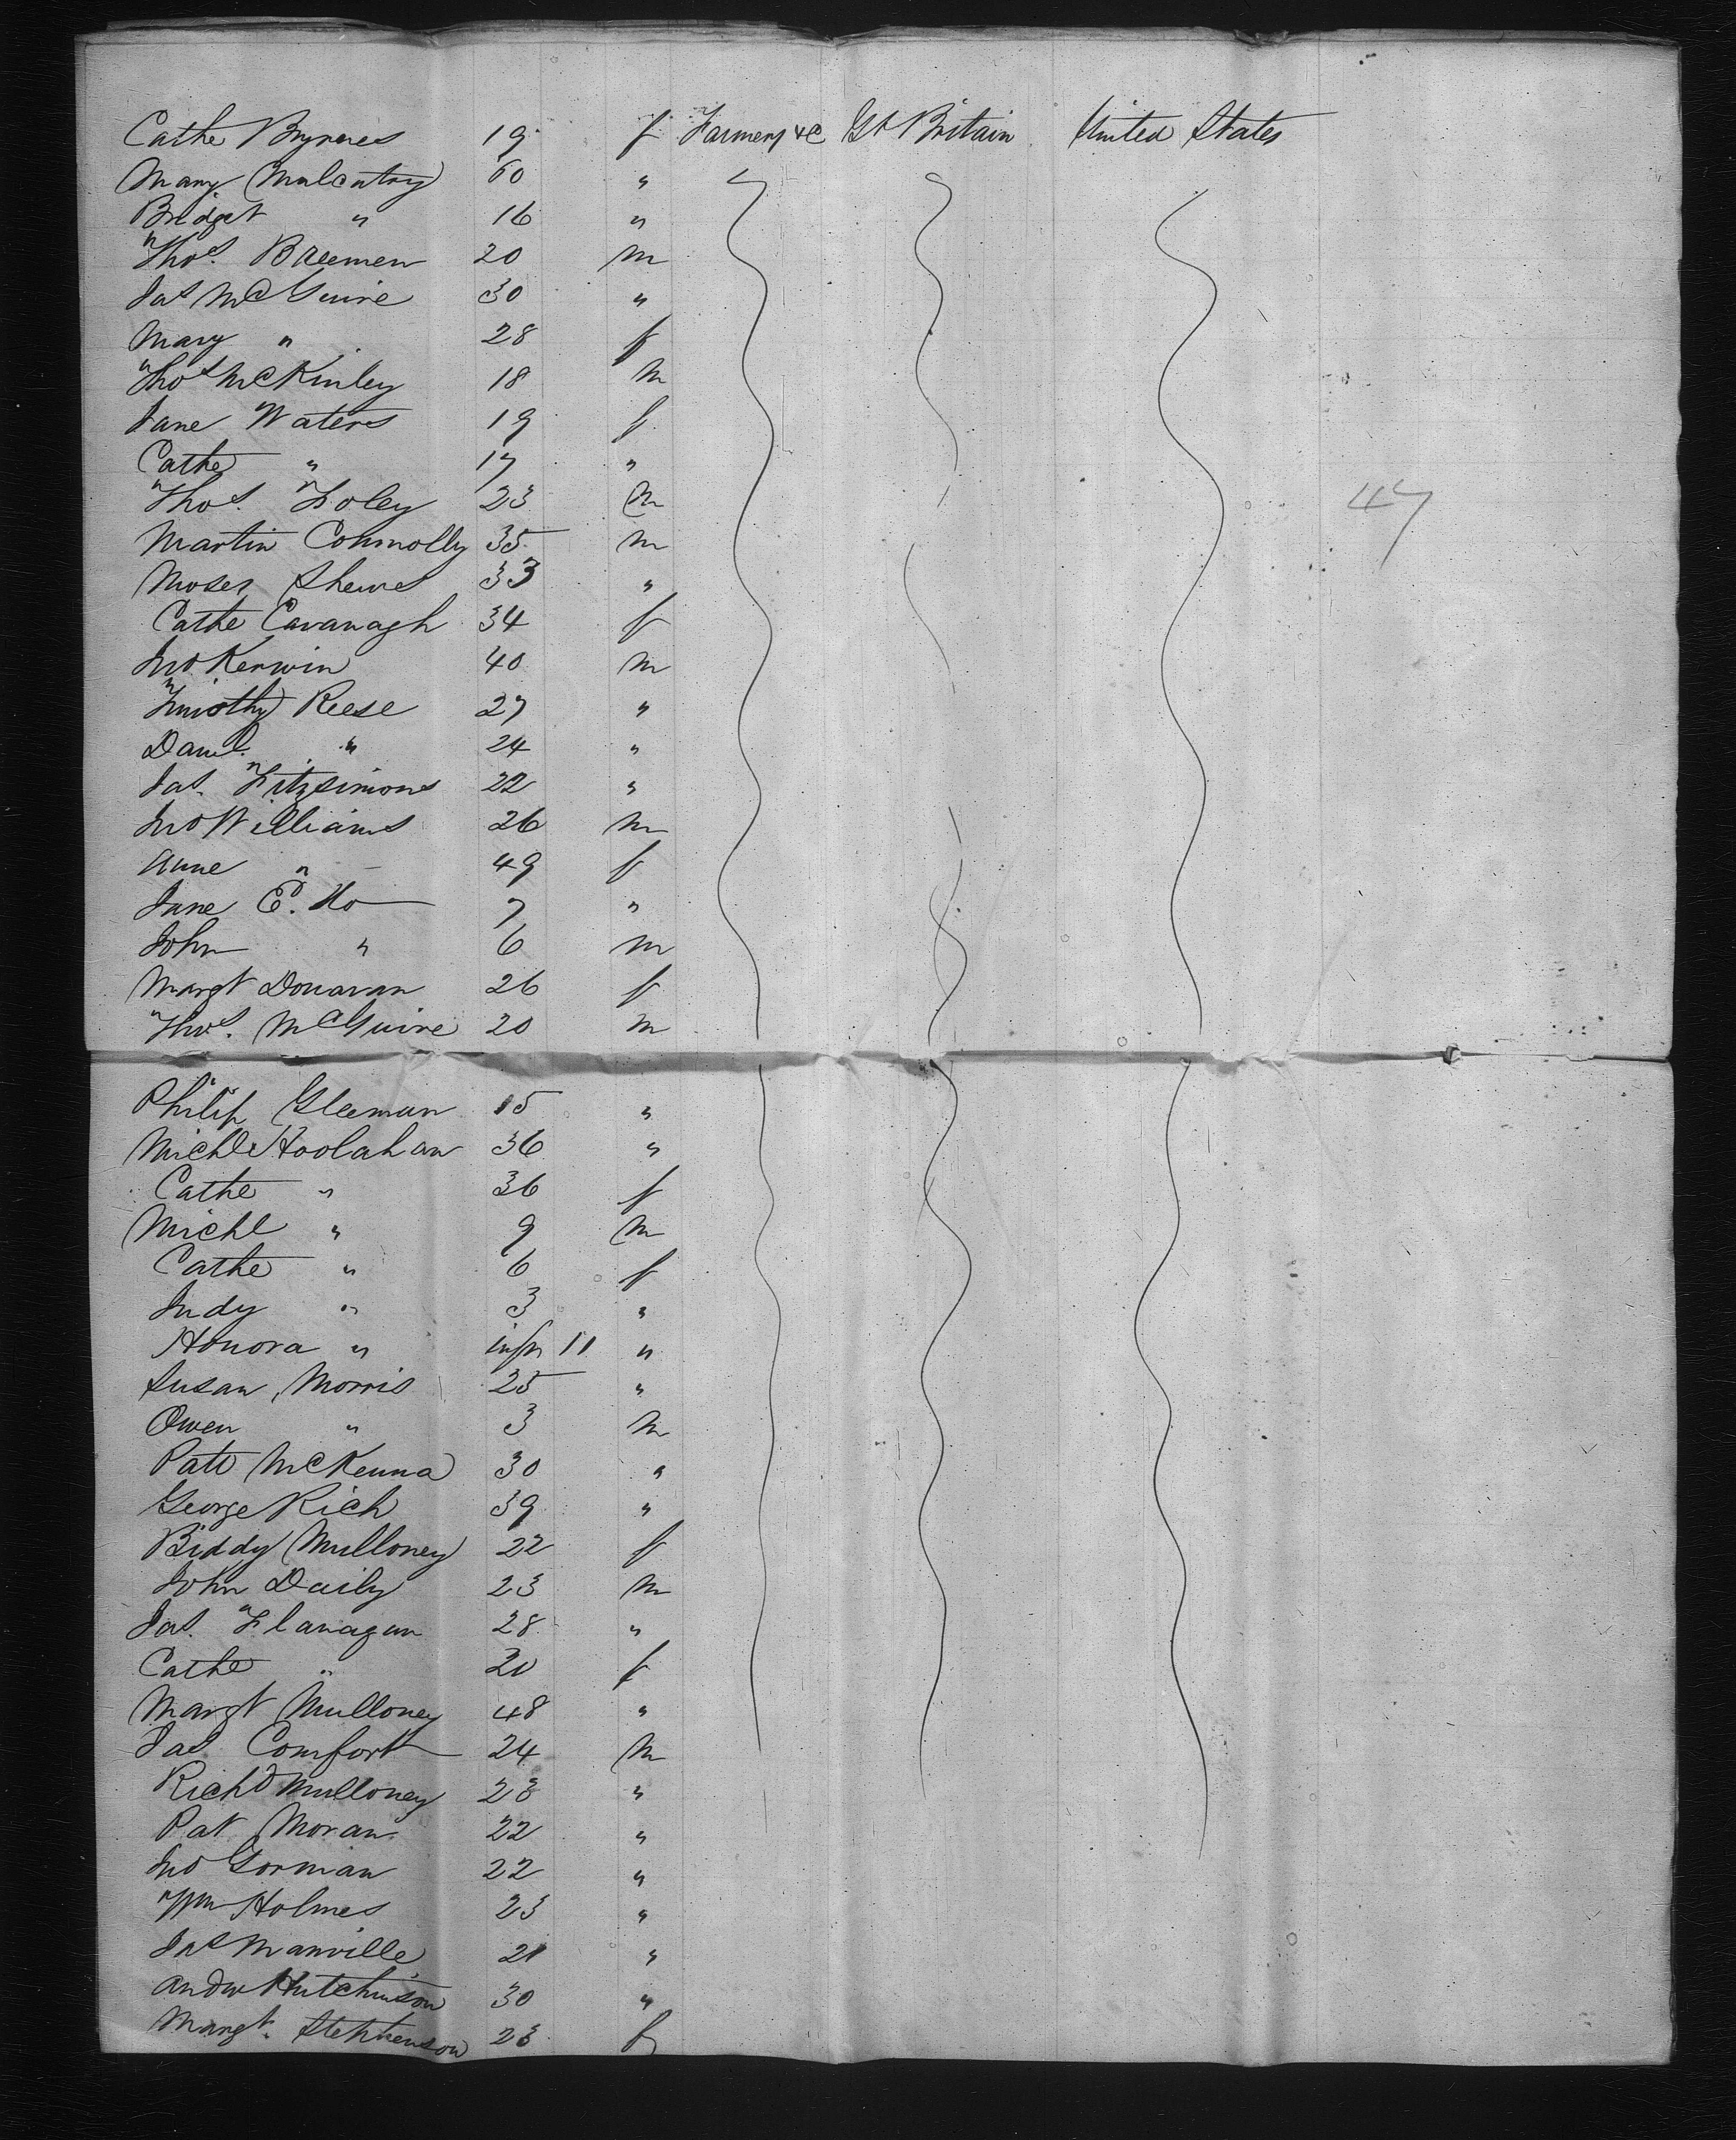 Cathe Byrnes 19 f Farmers &c Gt Britain United States
Mary Mulcatry 60 "
Bridget " 16 "
Thos. Breemen 20 m
Jas McGuire 30 "
Mary " 28 f
Thos McKinley 18 m
Jane Waters 19 f
Cathe " 17 "
Thos. Foley 23 m
Martin Connolly 35 m 47
Moses 33 "
Cathe Cavanagh 34 f
Jno Kerwin 40 m
Timothy Reese 27 "
Danl. " 24 "
Jas. Fitzsimons 22 "
Jno Williams 26 m
Anne " 49 f
Jane E. Do 7 "
John " 6 m
Margt Donavan 26 f
Thos. McGuire 20 m
Philip Gleeman 15 "
Michl Hoolahan 36 "
Cathe " 36 f
Michl " 9 m
Cathe " 6 f
Judy " 3 "
Honora " inft 11 "
Susan Morris 25 "
Owen " 3 m
Patt McKenna 30 "
George Rich 39 "
Biddy Mulloney 22 f
John Daily 23 m
Jas. Flanagan 28 "
Cathe " 20 f
Margt Mulloney 48 "
Jas Comfort 24 m
Richd Mulloney 23 "
Pat Moran 22 "
Jno Gorman 22 "
Wm Holmes 23 "
Jas Manville 21 "
Andw Hutchinson 30 "
Margt. Stephenson 23 f